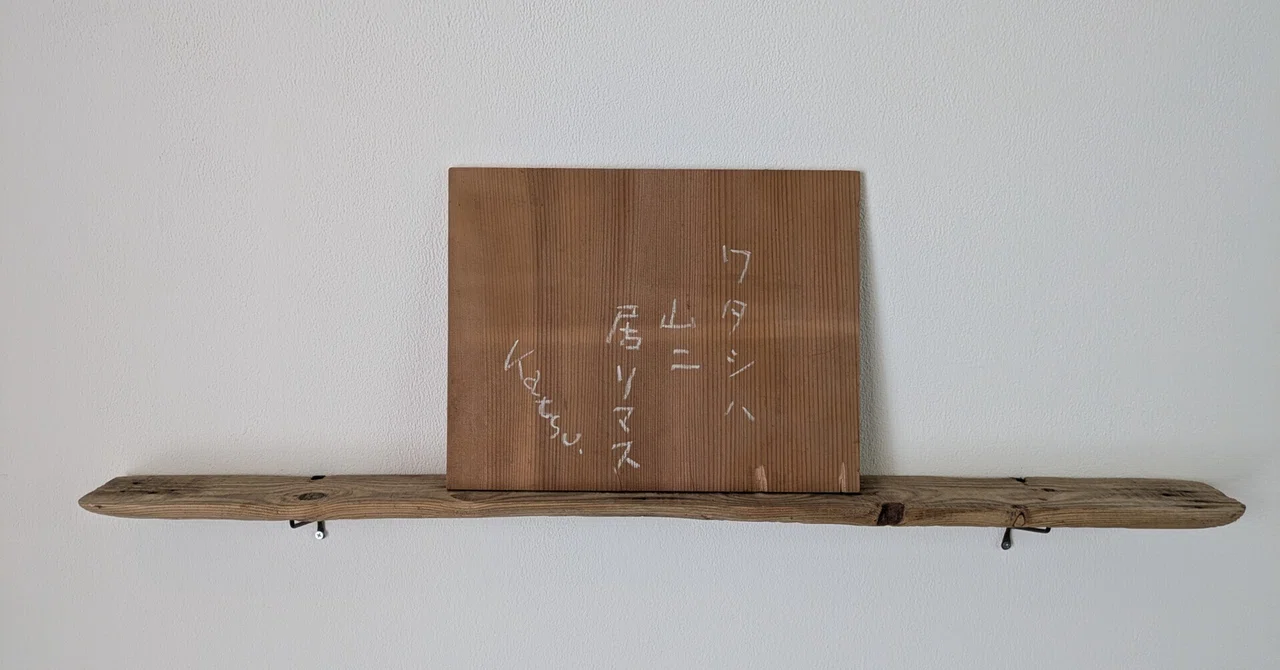 ワタシハ
山ニ
居リマス
Katsu.